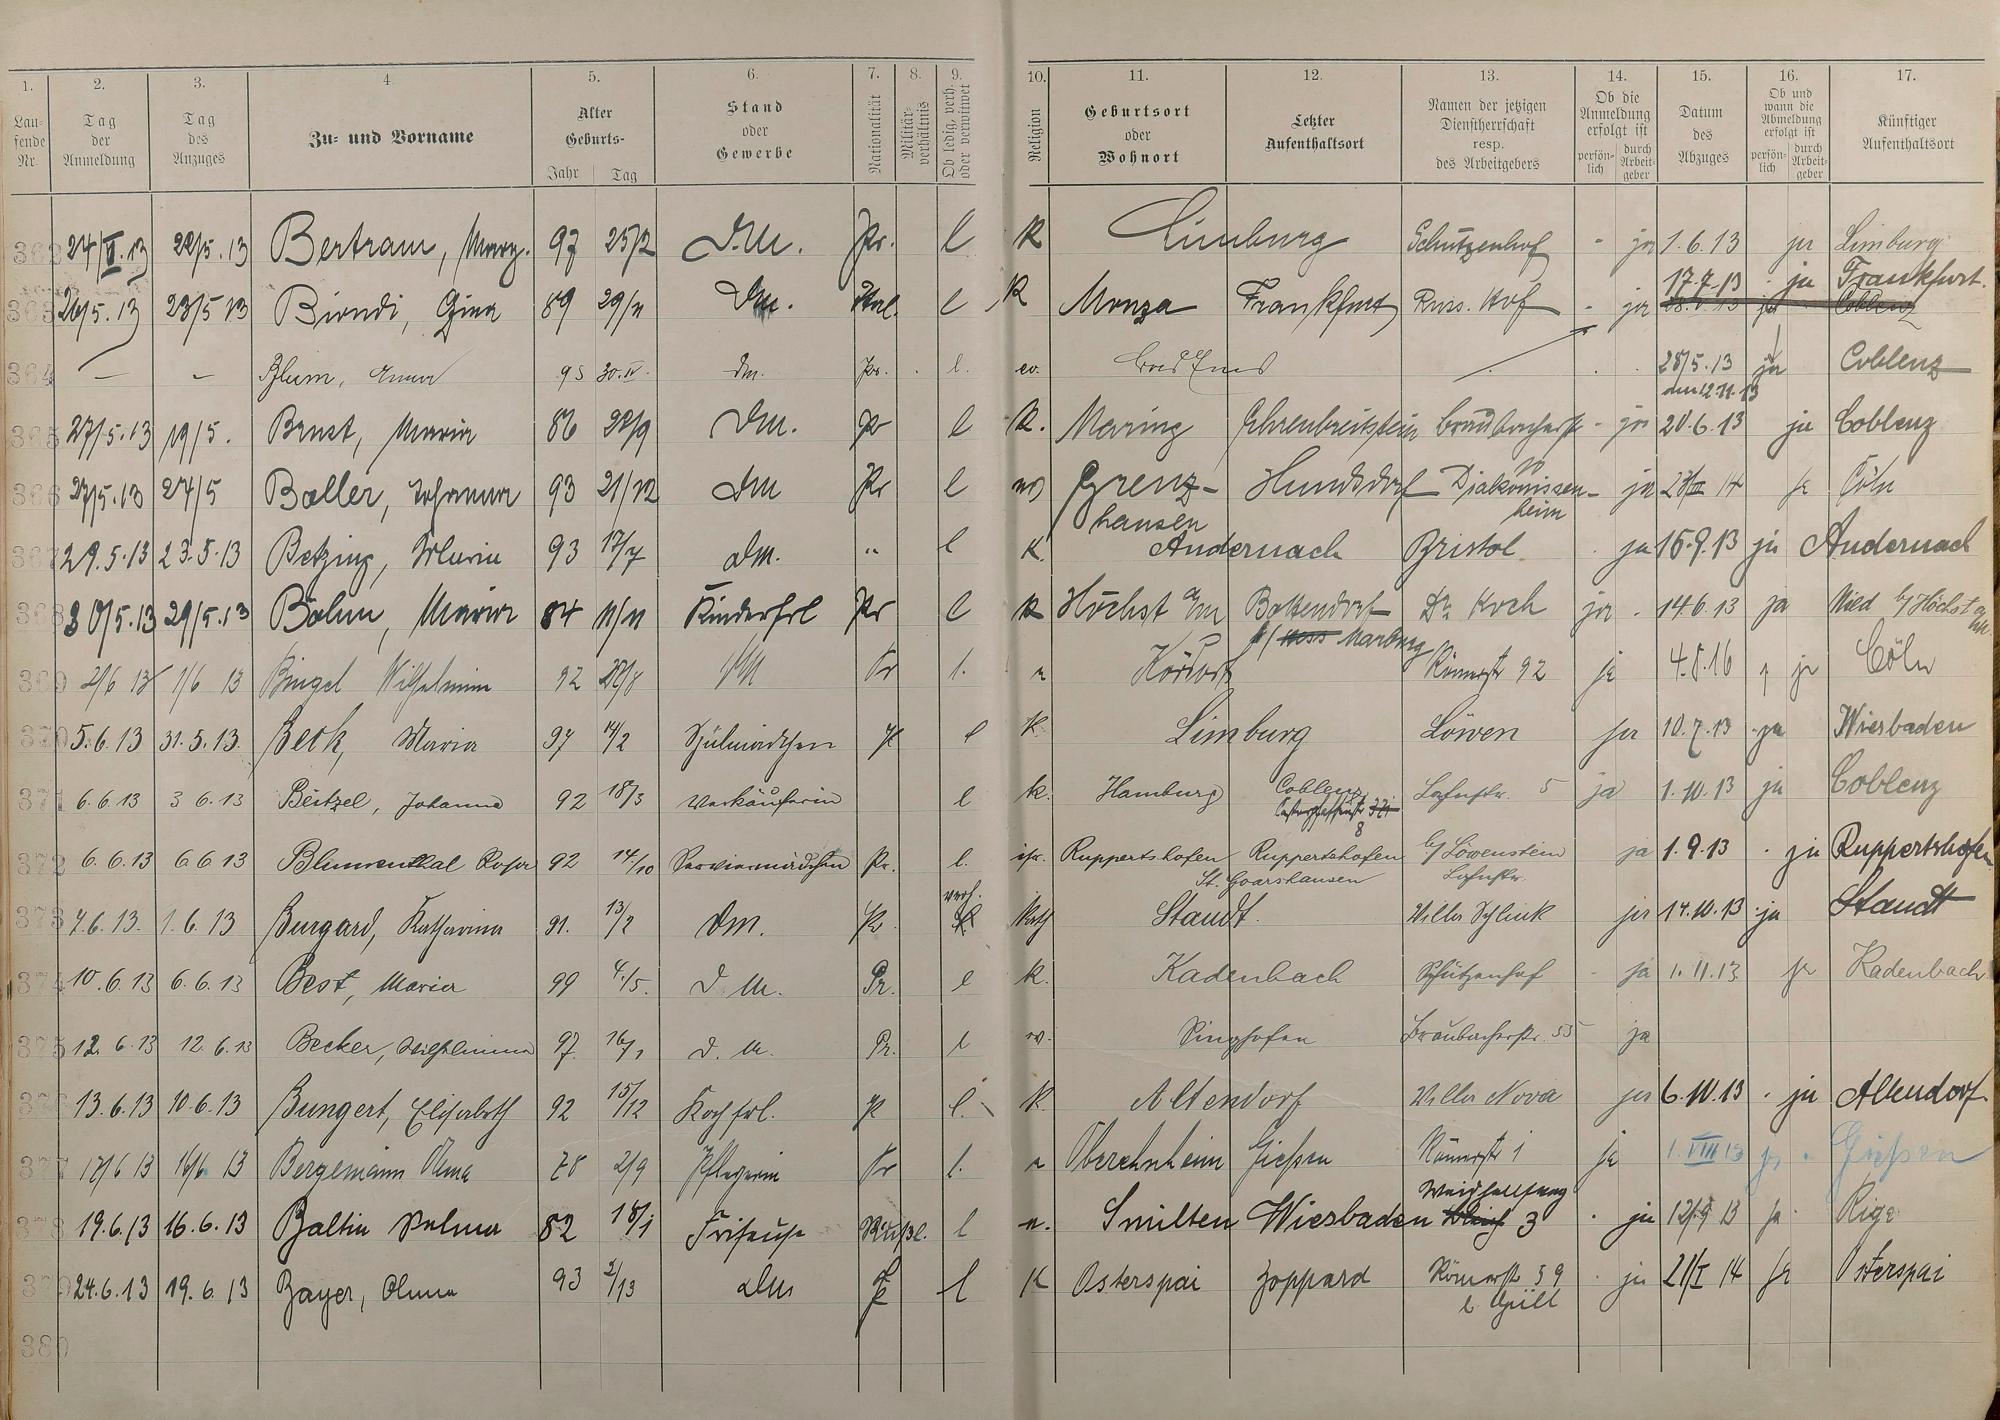 1. 2. 3. 4. 5. 6. 7. 8. 9. 10. 11. 12. 13. 14. 15. 16. 17.
Laufende Nr. | Tag der Anmeldung | Tag des Anzuges | Zu- und Vorname | Alter Geburts- Jahr Tag | Stand oder Gewerbe | Nationalität | Militärverhältnis | Ob ledig, verh. oder verwitwet | Religion | Geburtsort oder Wohnort | Letzter Aufenthaltsort | Namen der jetzigen Dienstherrschaft resp. des Arbeitgebers | Ob die Anmeldung erfolgt ist persönlich durch Arbeitgeber | Datum des Abzuges | Ob und wann die Abmeldung erfolgt ist persönlich durch Arbeitgeber | Künftiger Aufenthaltsort
362 24/V.13 22/5.13 Bertram, Marg. 97 25/2 D.M. Pr. l K Limburg Schützenhof - ja 1.6.13 ja Limburg
17.7.13 ja Frankfurt.
363 26/5.13 23/5 13 Biondi, Gina 89 29/11 DM. Ital. l K Monza Frankfurt Russ. Hof - ja Coblenz
364 — — Blum, Emma 95 30.IV. DM. Pr. l. ev. Bad Ems 28/5.13 ja Coblenz
365 27/5.13 19/5. Brust, Maria 86 22/9 DM. Pr l K. Maring Ehrenbreitstein Braubacherstr - ja 20.6.13 ja Coblenz
366 27/5.13 27/5 Boller, Johanna 93 21/12 DM Pr l Grenz- Hundsdorf Diakonissen- ja 14 ja Cöln
hausen heim
367 29.5.13 23.5.13 Betzing, Maria 93 17/7 DM. " l K. Andernach Bristol ja 15.9.13 ja Andernach
368 30/5.13 29/5.13 Böhm, Maria 84 11/11 Kinderfrl Pr l K Höchst a/M Bottendorf Dr. Koch ja . 14.6.13 ja Nied b/Höchst a/M.
b/ Marburg
369 2/6 13 1/6 13 Bingel Wilhelmine 92 27/8 DM Pr l. Kördorf Römerstr 92 ja 4.8.16 ja Cöln
370 5.6.13 31.5.13. Beck, Maria 97 14/2 Spülmädchen Pr l K. Limburg Löwen ja 10.7.13 ja Wiesbaden
371 6.6.13 3 6.13 Beitzel, Johanna 92 18/3 Verkäuferin l k. Hamburg Coblenz Lahnstr. 5 ja 1.10.13 ja Coblenz
8
372 6.6.13 6.6 13 Blumenthal Rosa 92 14./10 Serviermädchen Pr. l. isr. Ruppertshofen Ruppertshofen b/Löwenstein ja 1.9.13 . ja Ruppertshofen
St. Goarshausen Lahnstr.
verh.
373 7.6.13. 1.6.13 Burgard, Katharina 91. 13/2 DM. Pr. Kath Staudt. Villa Schlink ja 14.10.13 ja Staudt
374 10.6.13 6.6.13 Best, Maria 99 4./5. D.M. Pr. l k. Kadenbach Schützenhof - ja 1.11.13 ja Kadenbach
375 12.6.13 12.6.13 Becker, Wilhelmine 97. 16/1 D.M. Pr. l ev. Singhofen Braubacherstr. 55 ja
376 13.6.13 10.6.13 Bungert, Elisabeth 92 15/12 Kochfrl. Pr l. K. Altendorf Villa Nova ja 6.10.13 . ja Altendorf
377 17/6 13 16/6 13 Bergemann Olma 78 2/9 Pflegerin Pr l. Giessen Römerstr 1 ja 1.VIII 13 ja . Giessen
378 19.6.13 16.6.13 Baltin Selma 82 18/1 Friseuse Russl. l Smilten Wiesbaden 3 . ja 13 ja. Riga
379 24.6.13 19.6.13 Bayer, Anna 93 2/13 DM Pr l K Osterspai Boppard Römerstr 59 . ja 21/I 14 ja Osterspai
380